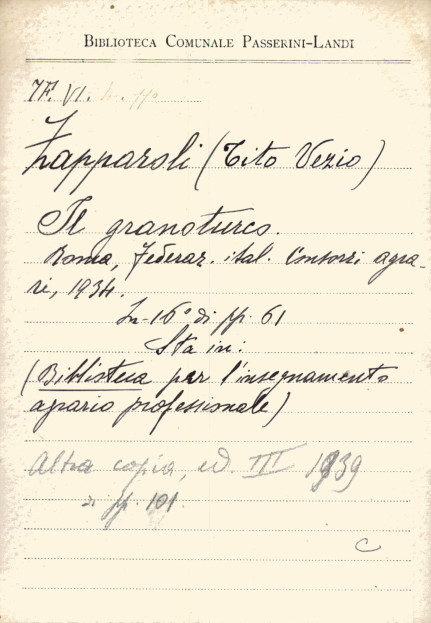 BIBLIOTECA COMUNALE PASSERINI-LANDI
7F. VI.
Zapparoli (Tito Vezio)
Il granoturco.
Roma, Federaz. ital. Consorzi agra-
ri, 1934.
In-16° di pp. 61
Sta in:
(Biblioteca per l'insegnamento
agrario professionale)
Altra copia, ed. III 1939
di pp. 101.
C